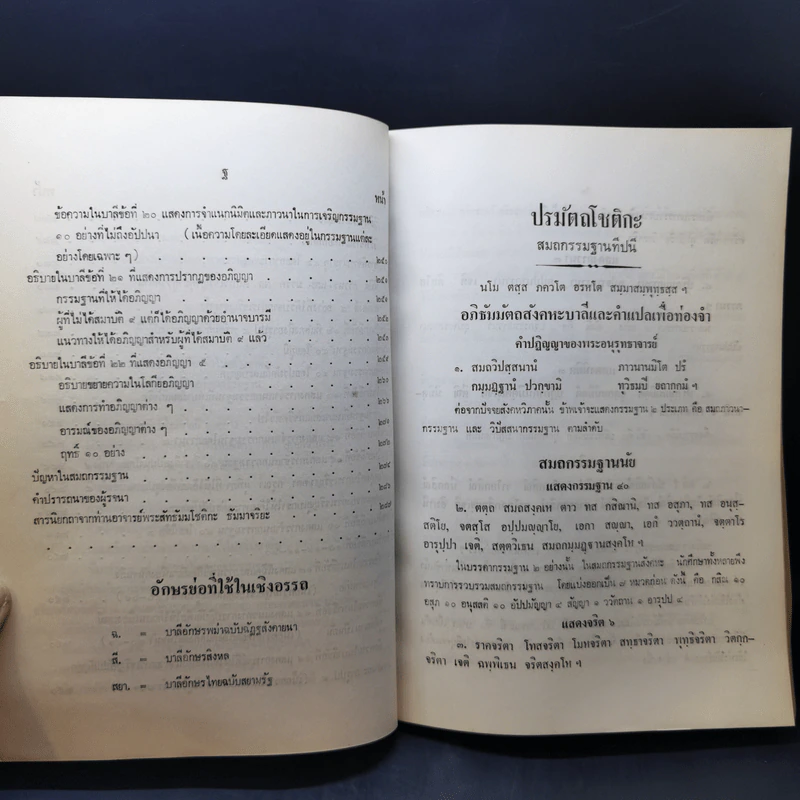 ฐ
หน้า
ข้อความในบาลีข้อที่ ๒๐ แสดงการจำแนกนิมิตและภาวนาในการเจริญกรรมฐาน
๑๐ อย่างที่ไม่ถึงอัปปนา (เนื้อความโดยละเอียดแสดงอยู่ในกรรมฐานแต่ละ
อย่างโดยเฉพาะ ๆ)
อธิบายในบาลีข้อที่ ๒๑ ที่แสดงการปรากฏของอภิญญา
กรรมฐานที่ให้ได้อภิญญา
ผู้ที่ไม่ได้สมาบัติ ๙ แต่ก็ได้อภิญญาด้วยอำนาจบารมี
แนวทางให้ได้อภิญญาสำหรับผู้ที่ได้สมาบัติ ๙ แล้ว
อธิบายในบาลีข้อที่ ๒๒ ที่แสดงอภิญญา ๕
อธิบายขยายความในโลกียอภิญญา
แสดงการทำอภิญญาต่าง ๆ
อารมณ์ของอภิญญาต่าง ๆ
ฤทธิ์ ๑๐ อย่าง
ปัญหาในสมถกรรมฐาน
คำปรารถนาของผู้รจนา
สารนิยกถาจากท่านอาจารย์พระสัทธัมมโชติกะ ธัมมาจริยะ
อักษรย่อที่ใช้ในเชิงอรรถ
ฉ. = บาลีอักษรพม่าฉบับฉัฏฐสังคายนา
สี. = บาลีอักษรสิงหล
สยา. = บาลีอักษรไทยฉบับสยามรัฐ
ปรมัตถโชติกะ
สมถกรรมฐานทีปนี
นโม ตสฺส ภควโต อรหโต สมฺมาสมฺพุทฺธสฺส ฯ
อภิธัมมัตถสังคหะบาลีและคำแปลเพื่อท่องจำ
คำปฏิญญาของพระอนุรุทธาจารย์
๑. สมถวิปสฺสนานํ ภาวนานมิโต ปรํ
กมฺมฏฺฐานํ ปวกฺขามิ ทุวิธมฺปิ ยถากฺกมํ ฯ
ต่อจากปัจจยสังคหวิภาคนั้น ข้าพเจ้าจะแสดงกรรมฐาน ๒ ประเภท คือ สมถภาวนา-
กรรมฐาน และ วิปัสสนากรรมฐาน ตามลำดับ
สมถกรรมฐานนัย
แสดงกรรมฐาน ๔๐
๒. ตตฺถ สมถสงฺคเห ตาว ทส กสิณานิ, ทส อสุภา, ทส อนุสฺ-
สติโย, จตสฺโส อปฺปมญฺญาโย, เอกา สญฺญา, เอกํ ววตฺถานํ, จตฺตาโร
อารุปฺปา เจติ, สตฺตวิเธน สมถกมฺมฏฺฐานสงฺคโห ฯ
ในบรรดากรรมฐาน ๒ อย่างนั้น ในสมถกรรมฐานสังคหะ นักศึกษาทั้งหลายพึง
ทราบการรวบรวมสมถกรรมฐาน โดยแบ่งออกเป็น ๗ หมวดก่อน ดังนี้ คือ กสิณ ๑๐
อสุภ ๑๐ อนุสสติ ๑๐ อัปปมัญญา ๔ สัญญา ๑ ววัตถาน ๑ อารุปป ๔
แสดงจริต ๖
๓. ราคจริตา โทสจริตา โมหจริตา สทฺธาจริตา พุทฺธิจริตา วิตกฺก-
จริตา เจติ ฉพฺพิเธน จริตสงฺคโห ฯ